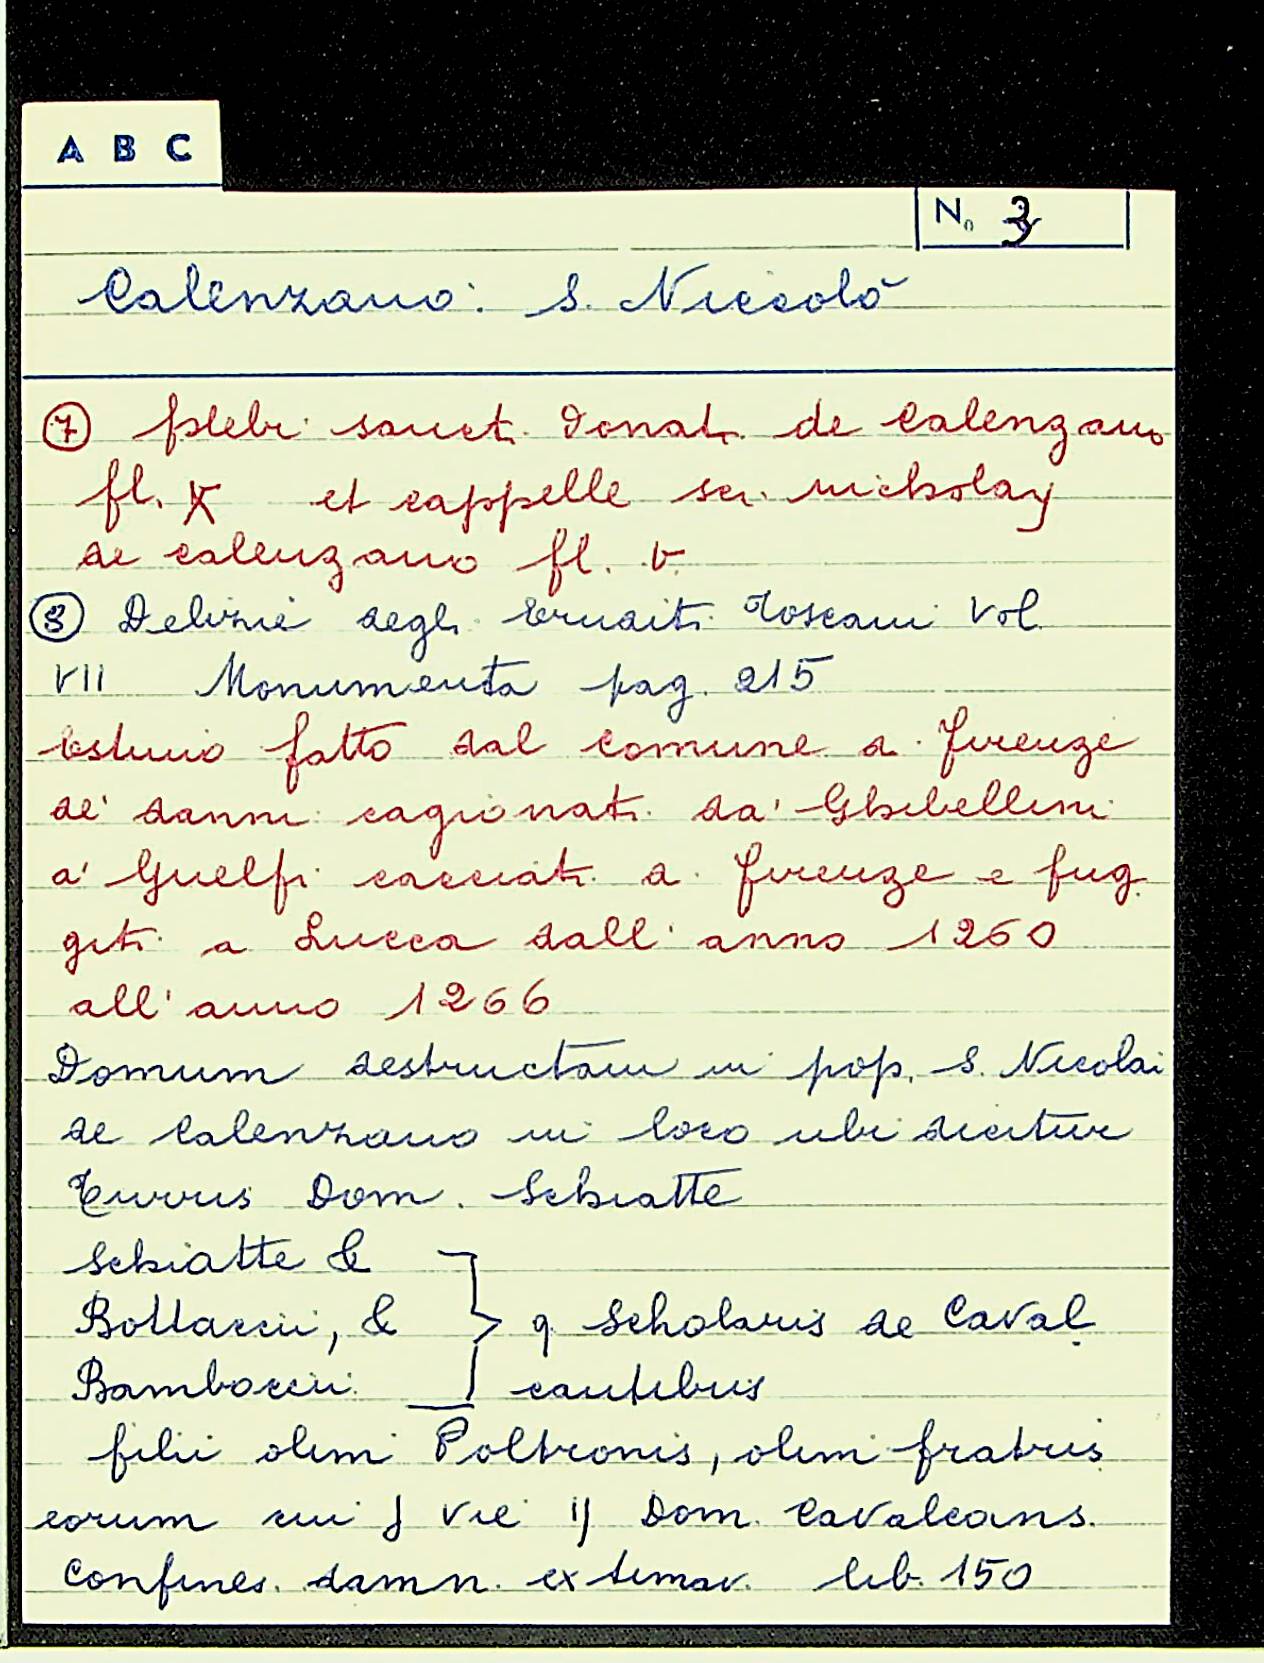 A B C
N. 3
Calenzano: S. Niccolò
⑦ plebi sancti Donati de Calenzano
fl. X et cappelle sci. nicholay
de calenzano fl. V.
⑧ Delizie degli Eruditi Toscani Vol.
VII Monumenta pag. 215
Estimo fatto dal comune di Firenze
de' danni cagionati da' Ghibellini
a' Guelfi cacciati di Firenze e fug
giti a Lucca dall'anno 1260
all'anno 1266
Domum destructam in pop. S. Nicolai
de Calenzano in loco ubi dicitur
Turris Dom. Schiatte
Schiatte &
Bottaccii, & } q Scholaris de Caval
Bamboccii cantibus
filii olim Poltronis, olim fratris
eorum cui J Vie IJ Dom. Cavalcans.
Confines. damn. extimav. lib. 150